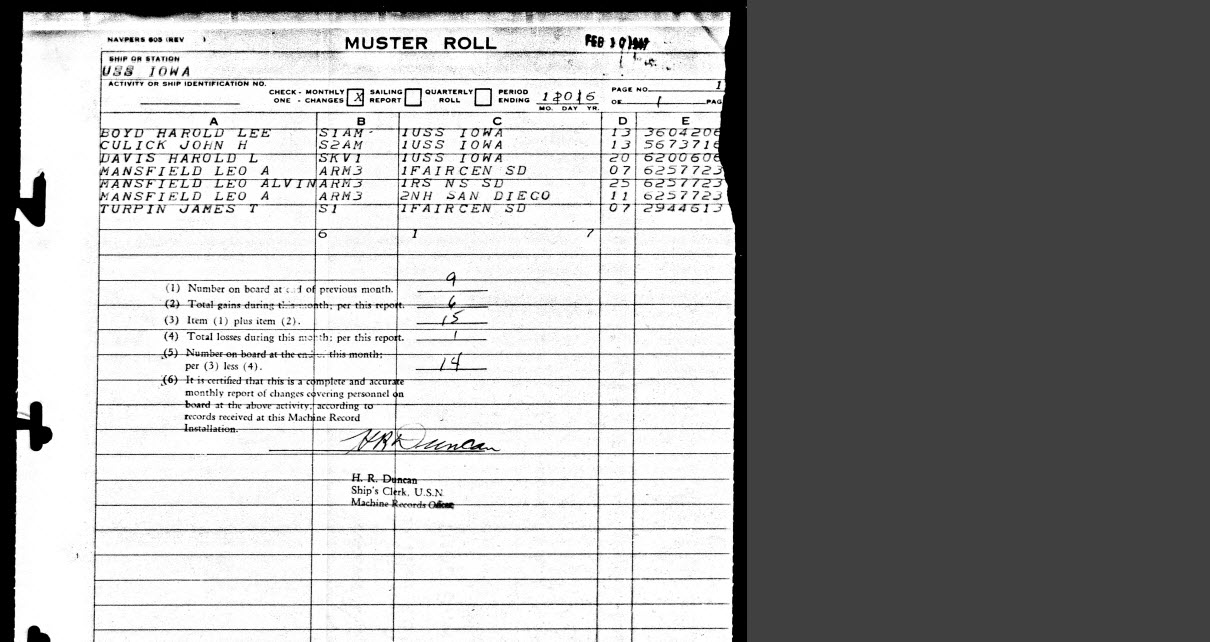 NAVPERS 605 (REV )
MUSTER ROLL
FEB 10 1947
SHIP OR STATION
USS IOWA
ACTIVITY OR SHIP IDENTIFICATION NO.
CHECK - MONTHLY ONE - CHANGES X SAILING REPORT QUARTERLY ROLL PERIOD ENDING 12016 MO. DAY YR.
PAGE NO. 1
OF 1 PAG
A B C D E
BOYD HAROLD LEE S1AM- 1USS IOWA 13 3604206
CULICK JOHN H S2AM 1USS IOWA 13 5673716
DAVIS HAROLD L SKV1 1USS IOWA 20 6200606
MANSFIELD LEO A ARM3 1FAIRCEN SD 07 6257723
MANSFIELD LEO ALVIN ARM3 1RS NS SD 25 6257723
MANSFIELD LEO A ARM3 2NH SAN DIECO 11 6257723
TURPIN JAMES T S1 1FAIRCEN SD 07 2944613
6 1 7
(1) Number on board at end of previous month. 9
(2) Total gains during this month; per this report. 6
(3) Item (1) plus item (2). 15
(4) Total losses during this month; per this report. 1
(5) Number on board at the end of this month;
per (3) less (4). 14
(6) It is certified that this is a complete and accurate
monthly report of changes covering personnel on
board at the above activity, according to
records received at this Machine Record
Installation.
H R Duncan
H. R. Duncan
Ship's Clerk, U.S.N.
Machine Records Officer
1